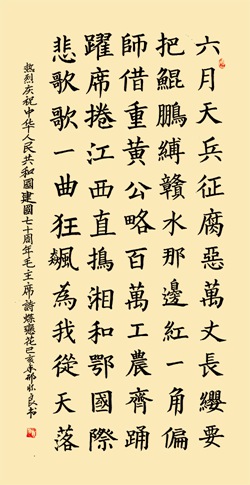 六月天兵征腐惡萬丈長纓要
把鯤鵬縛贛水那邊紅一角偏
師借重黃公略百萬工農齊踊
躍席捲江西直搗湘和鄂國際
悲歌歌一曲狂飆為我從天落
热烈庆祝中华人民共和國建國七十周年毛主席詩蝶戀花己亥 良书